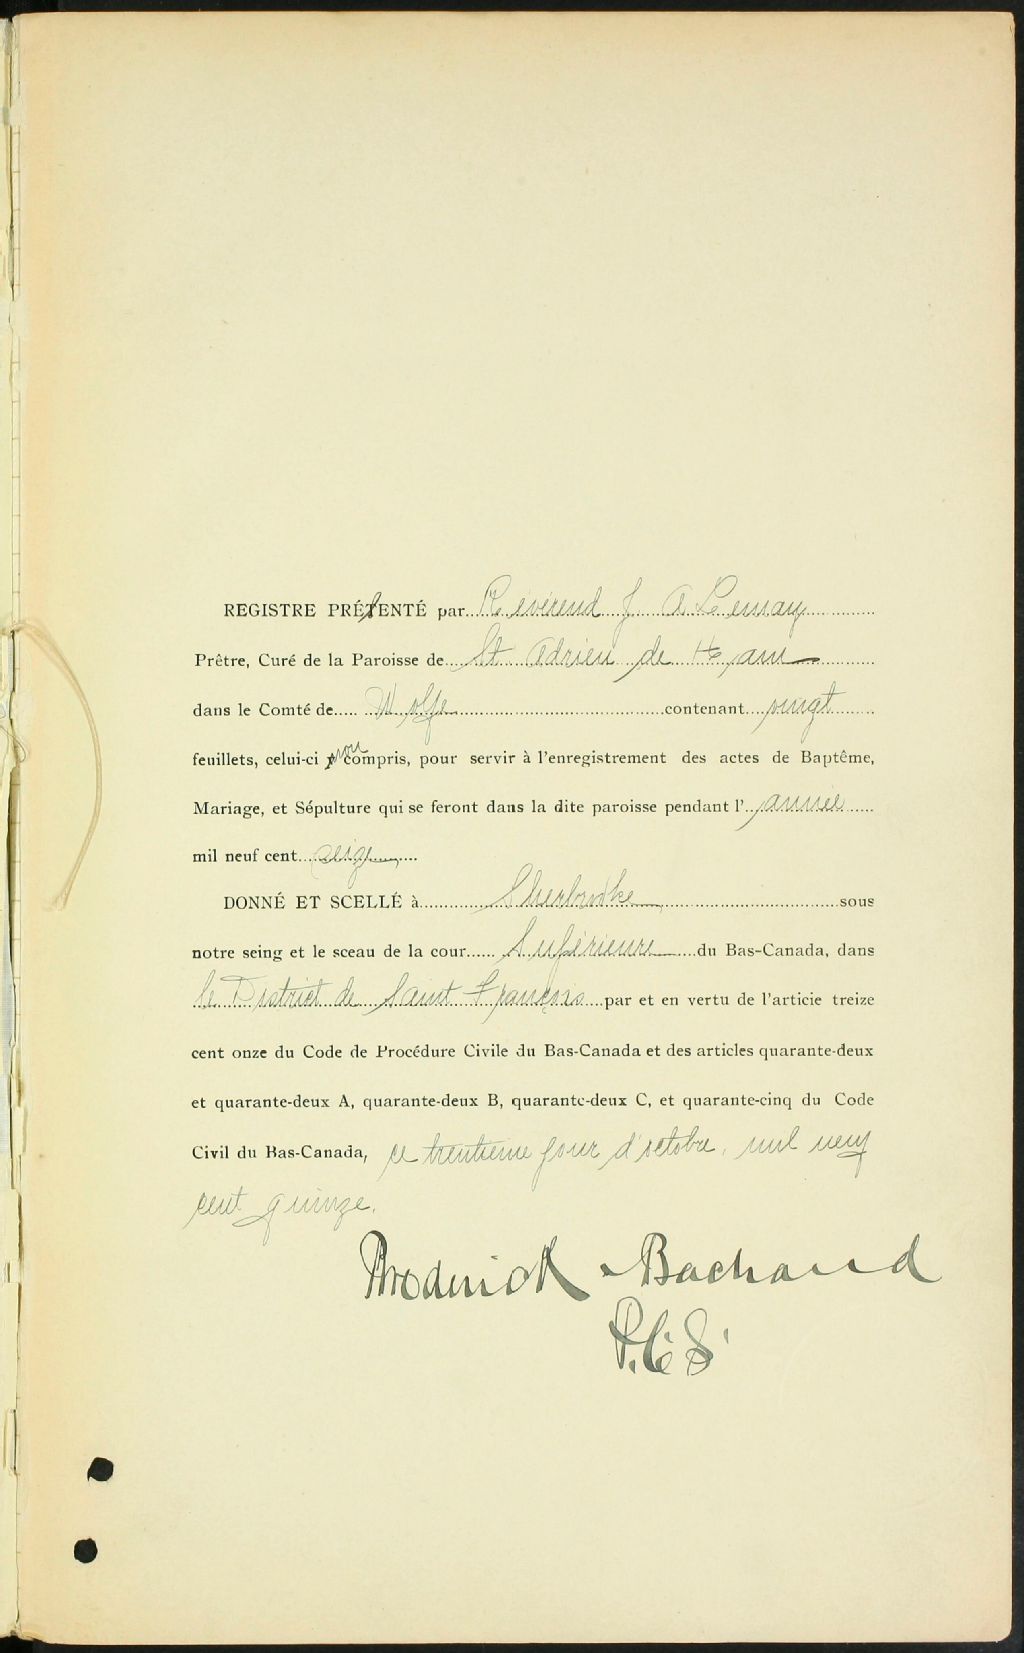 REGISTRE PRÉSENTÉ par Révérend J A Lemay
Prêtre, Curé de la Paroisse de St Adrien de Ham
dans le Comté de Wolfe contenant vingt
feuillets, celui-ci non compris, pour servir à l'enregistrement des actes de Baptême,
Mariage, et Sépulture qui se feront dans la dite paroisse pendant l' année
mil neuf cent seize
DONNÉ ET SCELLÉ à Sherbrooke sous
notre seing et le sceau de la cour Supérieure du Bas-Canada, dans
le District de Saint François par et en vertu de l'articie treize
cent onze du Code de Procédure Civile du Bas-Canada et des articles quarante-deux
et quarante-deux A, quarante-deux B, quarante-deux C, et quarante-cinq du Code
Civil du Bas-Canada, ce trentieme jour d'octobre, mil neuf
cent quinze.
Broderick Bachand
P.C.S.